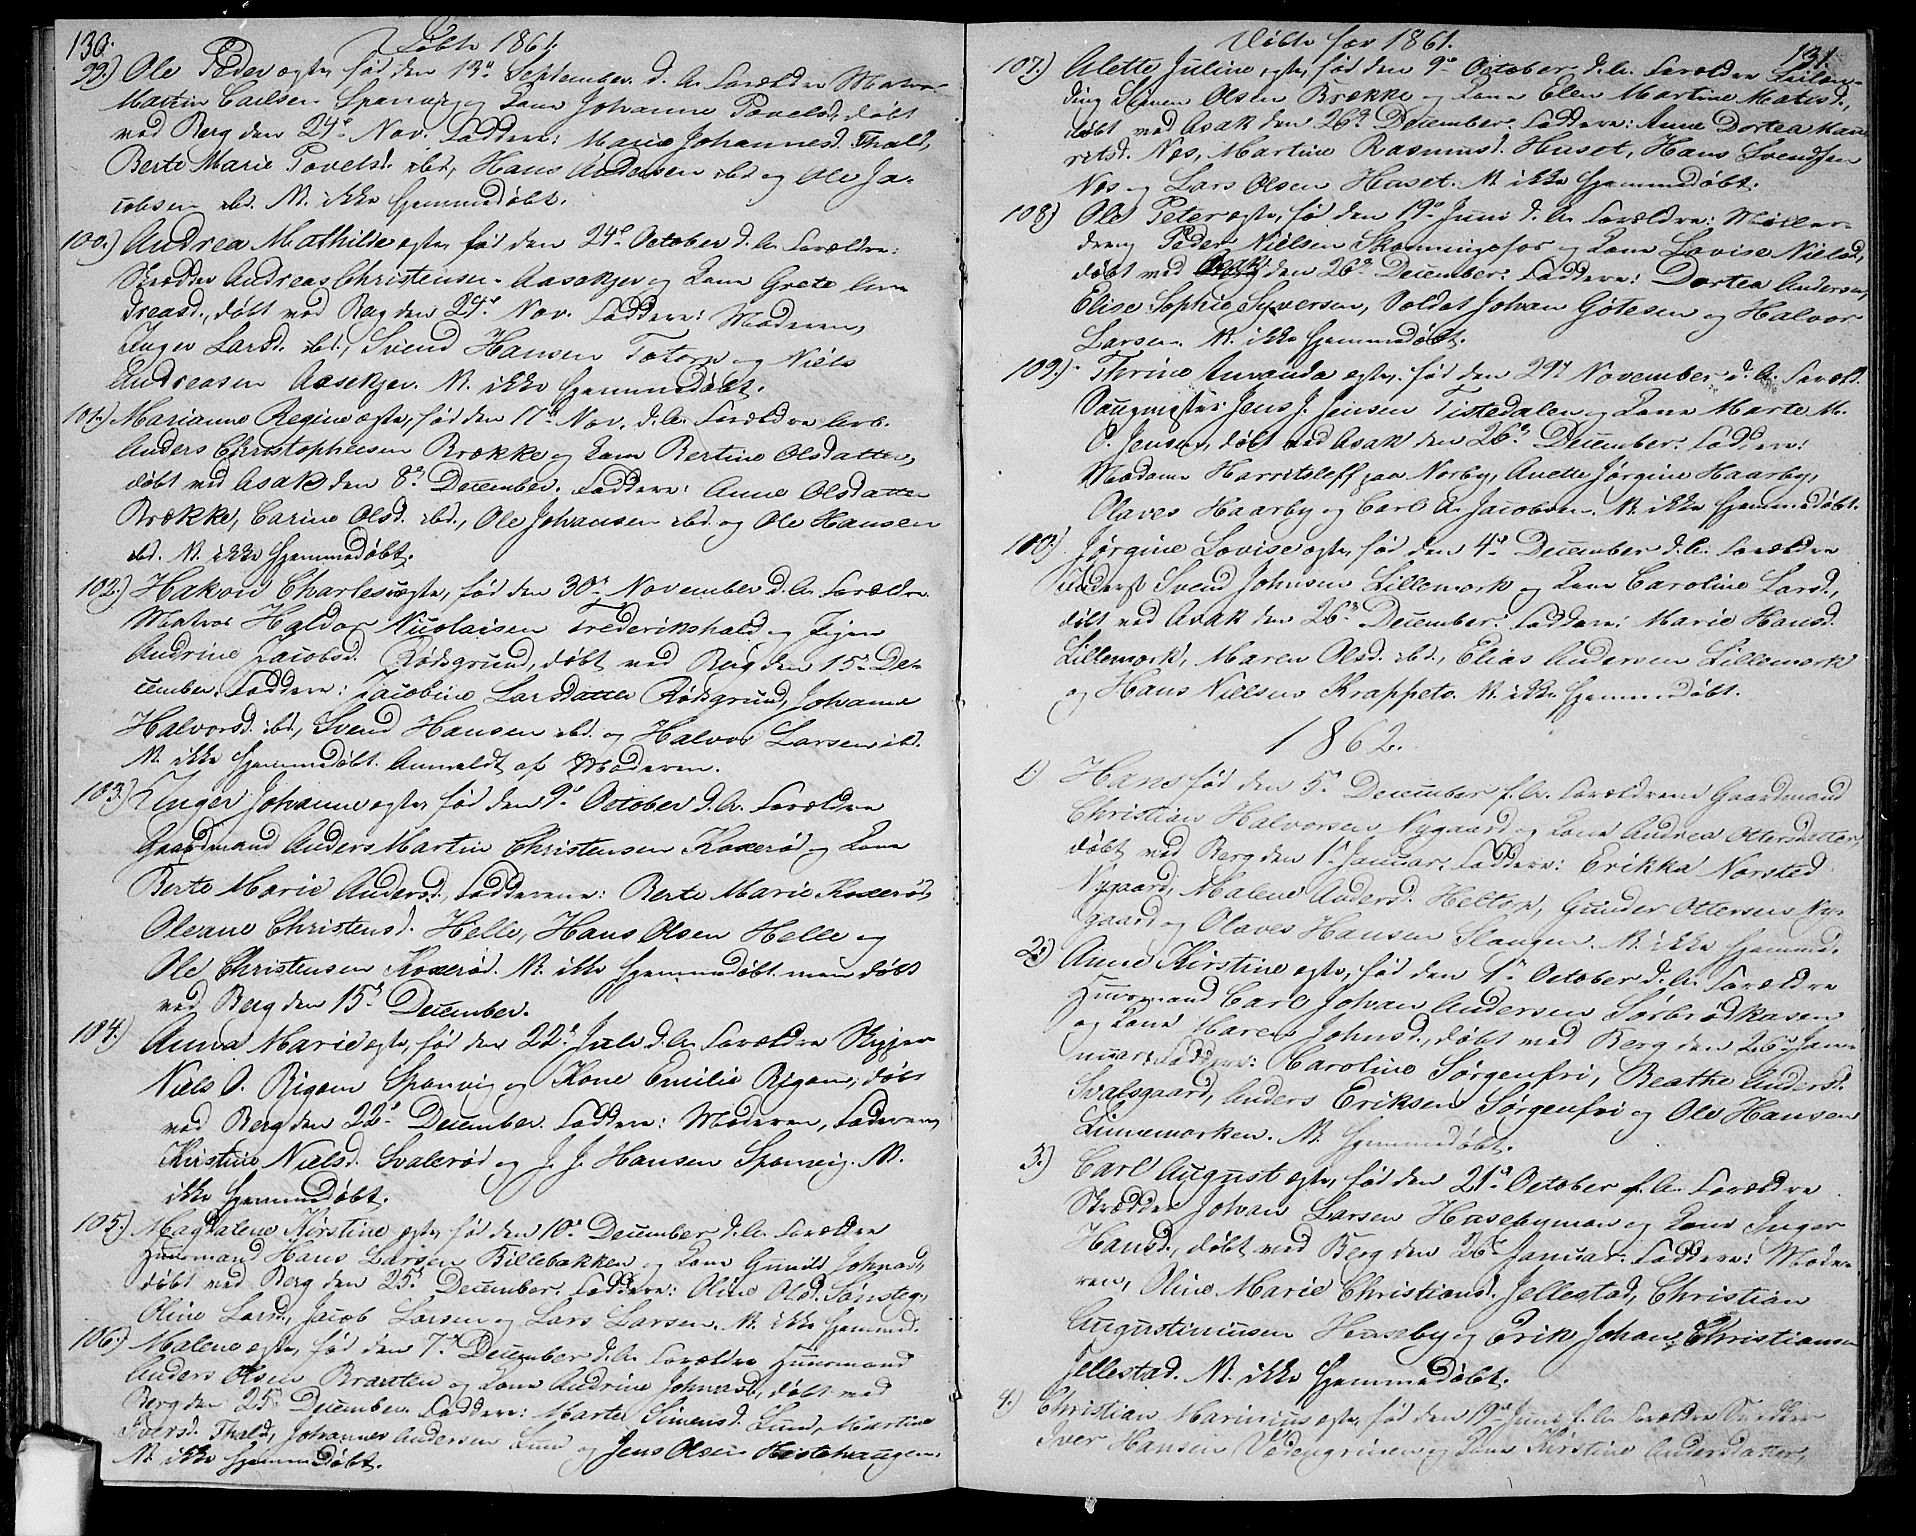 130.
Døbte 1861.
99.) Ole Peder ægte, fød den 13de September d. A. Forældre Matros
Martin Carlsen Sponvig og Kone Johanne Povelsd., døbt
ved Berg den 24de Nov. Faddere: Marie Johannesd. Thald,
Berte Marie Povelsd. ibd., Hans Andersen ibd. og Ole Ja-
cobsen ibd. N. ikke hjemmedøbt.
100.) Andrea Mathilde ægte, fød den 24de October d. A. Forældre:
Skrædder Andreas Christensen Aasekjer og Kone Grete An-
dreasd., døbt ved Berg den 24de Nov. Faddere: Moderen,
Inger Larsd. ibd., Svend Hansen Totorp og Niels
Andreasen Aasekjer. N. ikke hjemmedøbt.
101.) Marianne Regine ægte, fød den 17de Nov. d. A. Forældre Arb.
Anders Christophersen Brække og Kone Bertine Olsdatter,
døbt ved Asak den 8de December. Faddere: Anne Olsdatter
Brække, Carine Olsd. ibd., Ole Johansen ibd. og Ole Hansen
ibd. N. ikke hjemmedøbt.
102.) Hakon Charles uægte, fød den 30te November d. A. Forældre
Matros Haldor Nicolaisen Frederikshald og Pigen
Andrine Jacobsd. Rødsgrund, døbt ved Berg den 15de De-
cember. Faddere: Jacobine Larsdatter Rødsgrund, Johanne
Halvorsd. ibd., Svend Hansen ibd. og Halvor Larsen ibd.
N. ikke hjemmedøbt. Anmeldt af Moderen.
103.) Inger Johanne ægte, fød den 9de October d. A. Forældre
Gaardmand Anders Martin Christensen Koxerød og Kone
Berte Marie Andersd., Fadderene: Berte Marie Koxerød,
Oleane Christensd. Helle, Hans Olsen Helle og
Ole Christensen Koxerød. N. ikke hjemmedøbt men døbt
ved Berg den 15de December.
104.) Anna Marie ægte, fød den 22de Juli d. A. Forældre Skipper
Niels O. Rigem Sponvig og Kone Emilie Rigem, døbt
ved Berg den 22de December. Faddere: Moderen, Faderen,
Kirstine Nielsd. Svalerød og J. J. Hansen Sponvig. N.
ikke hjemmedøbt.
105.) Magdalene Kirstine ægte, fød den 10de December d. A. Forældre
Huusmand Hans Larsen Billebakken og Kone Gunild Johnsd.,
døbt ved Berg den 25de December. Faddere: Oline Olsd. Sønsteg.,
Oline Larsd., Jacob Larsen og Lars Larsen. N. ikke hjemmed.
106.) Malene ægte, fød den 7de December d. A. Forældre Huusmand
Anders Olsen Braaten og Kone Andrine Johnsd., døbt ved
Berg den 25de December. Faddere: Marte Simensd. Lund, Martine
Iversd. Thald, Johannes Andersen Lund og Jens Olsen Hestehaugen
N. ikke hjemmedøbt.
Døbte for 1861.
131.
107.) Alette Juline, ægte, fød den 9de October d. A. Forældre Leilæn-
ding Simen Olsen Brække og Kone Elen Martine Matisd.,
døbt ved Asak den 26de December. Faddere: Anne Dortea Mau-
ritsd. Næs, Martine Rasmusd. Huset, Hans Svendsen
Næs og Lars Olsen Huset. N. ikke hjemmedøbt.
108.) Ole Peter ægte, fød den 19de Juni d. A. Forældre: Møller-
dreng Peder Nielsen Skonningsfos og Kone Lovise Nielsd.,
døbt ved Asak den 26de December. Faddere: Dortea Andersen,
Elise Sophie Syversen, Soldat Johan Gotesen og Halvor
Larsen. N. ikke hjemmedøbt.
109.) Thrine Amanda ægte, fød den 29de November d. A. Foræld.
Saugmester Jens J. Jensen Tistedalen og Kone Marte M.
O. Jensen, døbt ved Asak den 26de December. Faddere:
Madame Harritsleff paa Norby, Anette Jørgine Haarby,
Olaves Haarby og Carl A. Jacobsen. N. ikke hjemmedøbt.
110.) Jørgine Lovise ægte, fød den 4de December d. A. Forældre
Inderst Svend Johnsen Lillemork og Kone Caroline Larsd.,
døbt ved Asak den 26de December. Faddere: Marie Hansd.
Lillemork, Maren Olsd. ibd., Elias Andersen Lillemork
og Hans Nielsen Krappeto. N. ikke hjemmedøbt.
1862.
1.) Hans fød den 5te December f. A. Forældrene Gaardmand
Christian Halvorsen Nygaard og Kone Andrea Ottersdatter,
døbt ved Berg den 1ste Januar. Faddere: Erikka Norsted
Nygaard, Malene Andersd. Heltorp, Gunder Ottersen Ny-
gaard og Olaves Hansen Slangen. N. ikke hjemmed.
2.) Anne Kirstine ægte, fød den 1ste October d. A. Forældre
Huusmand Carl Johan Andersen Sørbrødkasen
og Kone Maren Johnsd., døbt ved Berg den 26de Jan-
nuar. Faddere: Karoline Sørgenfri, Beathe Andersd.
Svalsgaard, Anders Eriksen Sørgenfri og Ole Hansen
Linnemorken. N. hjemmedøbt.
3.) Carl August ægte, fød den 21de October f. A. Forældre
Skrædder Johan Larsen Husebymon og Kone Inger
Hansd., døbt ved Berg den 26de Januar. Faddere: Mode-
ren, Oline Marie Christiansd. Jellestad, Christian
Augustiniusen Huseby og Erik Johan Christiansen
Jellestad. N. ikke hjemmedøbt.
4.) Christian Marinius ægte, fød den 19de Juni f. A. Forældre Snedker
Iver Hansen Vedengrinen og Kone Kirstine Andersdatter,